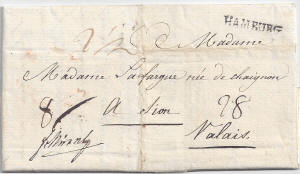 HAMBURG
a Madame
Madame Lafargue née de chaignon
8 A Sion 28
Valais.